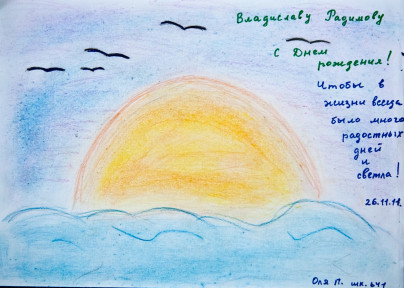 Владиславу Радимову
С Днем
рождения!
Чтобы в
жизни всегда
было много
радостных
дней
и
светла!
26.11.11.
Оля П. шк. 641